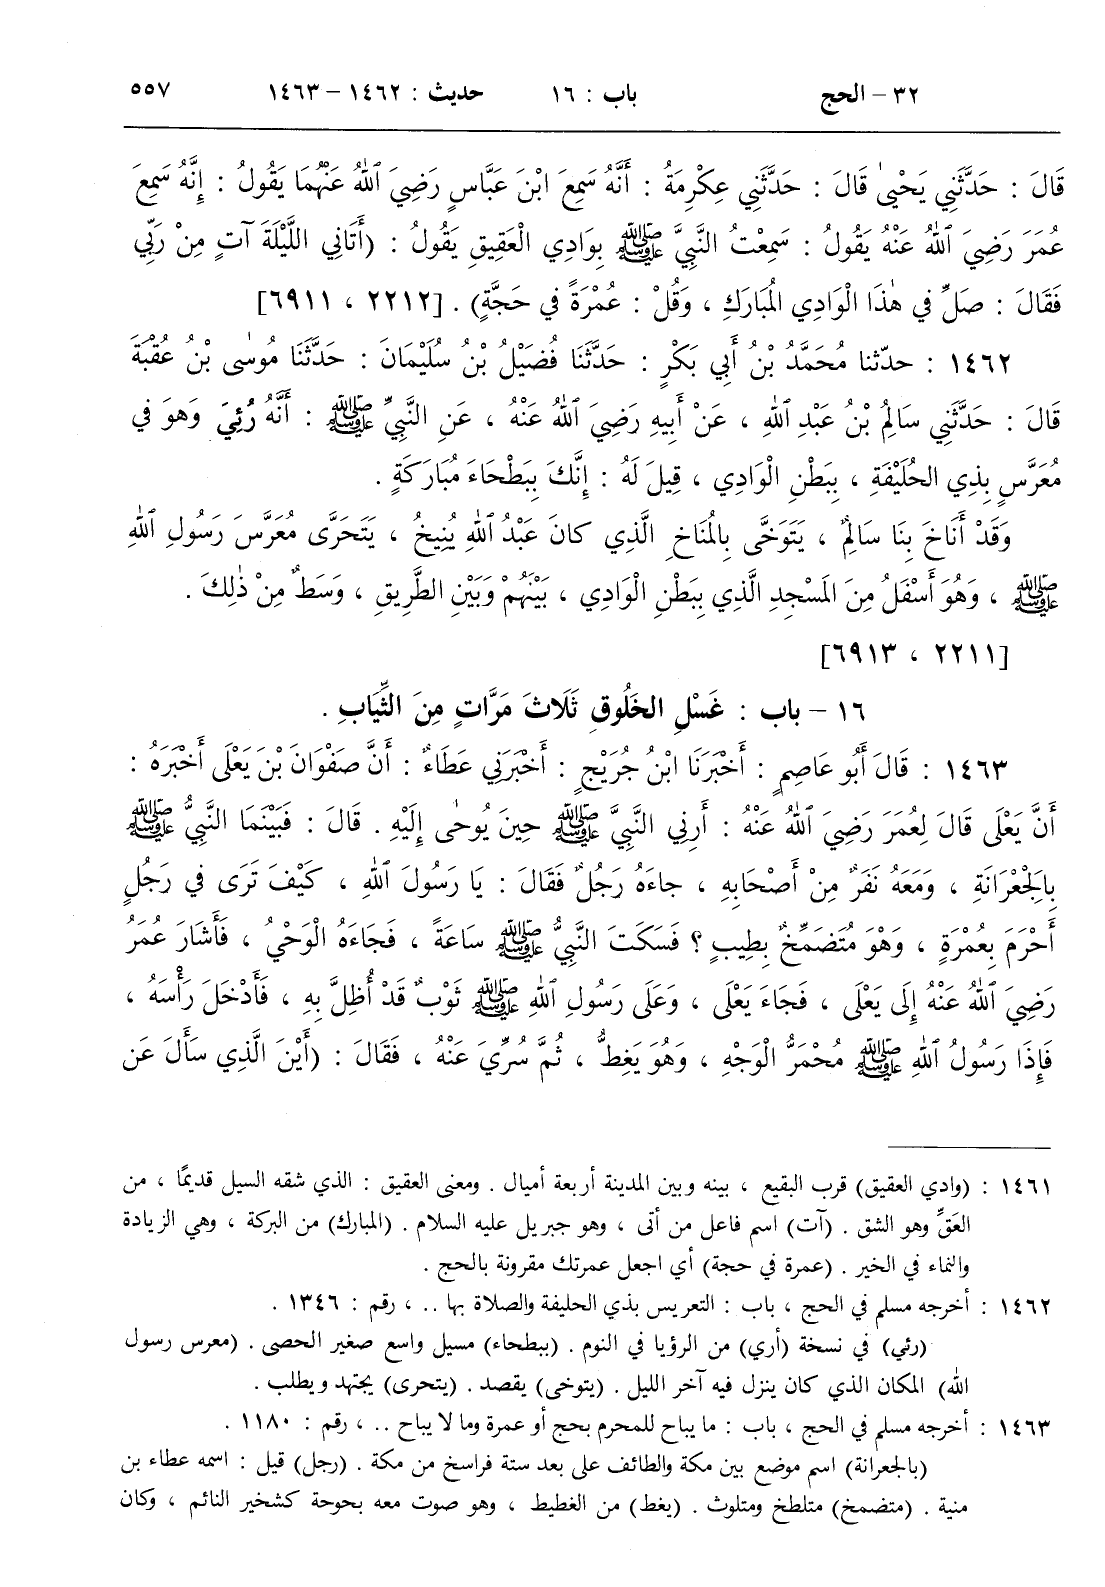 ٣٢ – الحج باب : ١٦ حديث : ١٤٦٢ – ١٤٦٣ ٥٥٧
قَالَ : حَدَّثَنِي يَحْيىٰ قَالَ : حَدَّثَنِي عِكْرِمَةُ : أَنَّهُ سَمِعَ ابْنَ عَبَّاسٍ رَضِيَ ٱللهُ عَنْهُمَا يَقُولُ : إِنَّهُ سَمِعَ
عُمَرَ رَضِيَ ٱللهُ عَنْهُ يَقُولُ : سَمِعْتُ النَّبِيَّ ﷺ بِوَادِي الْعَقِيقِ يَقُولُ : (أَتَانِي اللَّيْلَةَ آتٍ مِنْ رَبِّي
فَقَالَ : صَلِّ في هٰذَا الْوَادِي الْمُبَارَكِ ، وَقُلْ : عُمْرَةً في حَجَّةٍ) . [٢٢١٢ ، ٦٩١١]
١٤٦٢ : حدّثنا مُحَمَّدُ بْنُ أَبِي بَكْرٍ : حَدَّثَنَا فُضَيْلُ بْنُ سُلَيْمَانَ : حَدَّثَنَا مُوسٰى بْنُ عُقْبَةَ
قَالَ : حَدَّثَنِي سَالِمُ بْنُ عَبْدِ ٱللهِ ، عَنْ أَبِيهِ رَضِيَ ٱللهُ عَنْهُ ، عَنِ النَّبِيِّ ﷺ : أَنَّهُ رُئِيَ وَهوَ في
مُعَرَّسٍ بِذِي الحُلَيْفَةِ ، بِبَطْنِ الْوَادِي ، قِيلَ لَهُ : إِنَّكَ بِبَطْحَاءَ مُبَارَكَةٍ .
وَقَدْ أَنَاخَ بِنَا سَالِمٌ ، يَتَوَخَّى بِالْمُنَاخِ الَّذِي كانَ عَبْدُ ٱللهِ يُنِيخُ ، يَتَحَرَّى مُعَرَّسَ رَسُولِ ٱللهِ
ﷺ ، وَهُوَ أَسْفَلُ مِنَ الْمَسْجِدِ الَّذِي بِبَطْنِ الْوَادِي ، بَيْنَهُمْ وَبَيْنِ الطَّرِيقِ ، وَسَطٌ مِنْ ذٰلِكَ .
[٢٢١١ ، ٦٩١٣]
١٦ – باب : غَسْلِ الخَلُوقِ ثَلَاثَ مَرَّاتٍ مِنَ الثِّيَابِ .
١٤٦٣ : قَالَ أَبُو عَاصِمٍ : أَخْبَرَنَا ابْنُ جُرَيْجٍ : أَخْبَرَنِي عَطَاءٌ : أَنَّ صَفْوَانَ بْنَ يَعْلَى أَخْبَرَهُ :
أَنَّ يَعْلَى قَالَ لِعُمَرَ رَضِيَ ٱللهُ عَنْهُ : أَرِنِي النَّبِيَّ ﷺ حِينَ يُوحٰى إِلَيْهِ . قَالَ : فَبَيْنَمَا النَّبِيُّ ﷺ
بِالْجِعْرَانَةِ ، وَمَعَهُ نَفَرٌ مِنْ أَصْحَابِهِ ، جاءَهُ رَجُلٌ فَقَالَ : يَا رَسُولَ ٱللهِ ، كَيْفَ تَرَى في رَجُلٍ
أَحْرَمَ بِعُمْرَةٍ ، وَهْوَ مُتَضَمِّخٌ بِطِيبٍ ؟ فَسَكَتَ النَّبِيُّ ﷺ سَاعَةً ، فَجَاءَهُ الْوَحْيُ ، فَأَشَارَ عُمَرُ
رَضِيَ ٱللهُ عَنْهُ إِلَى يَعْلَى ، فَجَاءَ يَعْلَى ، وَعَلَى رَسُولِ ٱللهِ ﷺ ثَوْبٌ قَدْ أُظِلَّ بِهِ ، فَأَدْخَلَ رَأْسَهُ ،
فَإِذَا رَسُولُ ٱللهِ ﷺ مُحْمَرُّ الْوَجْهِ ، وَهُوَ يَغِطُّ ، ثُمَّ سُرِّيَ عَنْهُ ، فَقَالَ : (أَيْنَ الَّذِي سَأَلَ عَنِ
١٤٦١ : (وادي العقيق) قرب البقيع ، بينه وبين المدينة أربعة أميال . ومعنى العقيق : الذي شقه السيل قديمًا ، من
العَقِّ وهو الشق . (آت) اسم فاعل من أتى ، وهو جبريل عليه السلام . (المبارك) من البركة ، وهي الزيادة
والنماء في الخير . (عمرة في حجة) أي اجعل عمرتك مقرونة بالحج .
١٤٦٢ : أخرجه مسلم في الحج ، باب : التعريس بذي الحليفة والصلاة بها .. ، رقم : ١٣٤٦ .
(رئي) في نسخة (أري) من الرؤيا في النوم . (ببطحاء) مسيل واسع صغير الحصى . (معرس رسول
الله) المكان الذي كان ينزل فيه آخر الليل . (يتوخى) يقصد . (يتحرى) يجتهد ويطلب .
١٤٦٣ : أخرجه مسلم في الحج ، باب : ما يباح للمحرم بحج أو عمرة وما لا يباح .. ، رقم : ١١٨٠ .
(بالجعرانة) اسم موضع بين مكة والطائف على بعد ستة فراسخ من مكة . (رجل) قيل : اسمه عطاء بن
منية . (متضمخ) متلطخ ومتلوث . (يغط) من الغطيط ، وهو صوت معه بحوحة كشخير النائم ، وكان